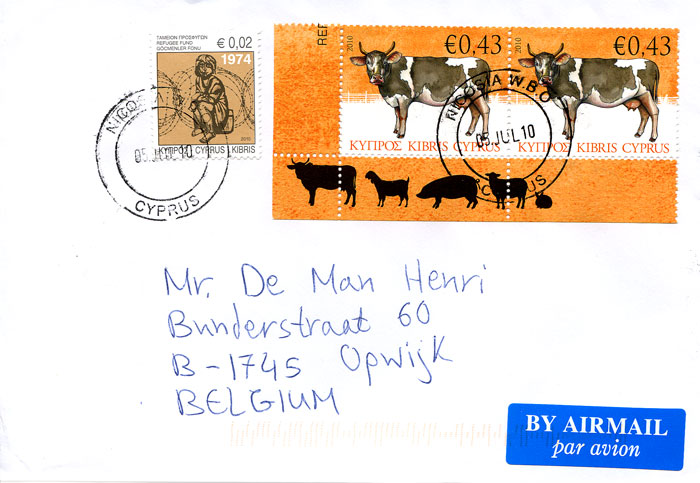 ΤΑΜΕΙΟΝ ΠΡΟΣΦΥΓΩΝ
REFUGEE FUND
GÖCMENLER FONU
€ 0,02
1974
2010
ΚΥΠΡΟΣ CYPRUS KIBRIS
REF
2010
€0,43
ΚΥΠΡΟΣ KIBRIS CYPRUS
2010
€0,43
ΚΥΠΡΟΣ KIBRIS CYPRUS
05 JUL 10
CYPRUS
NICOSIA W.B.O
05 JUL 10
CYPRUS
Mr. De Man Henri
Bunderstraat 60
B-1745 Opwijk
BELGIUM
BY AIRMAIL
par avion